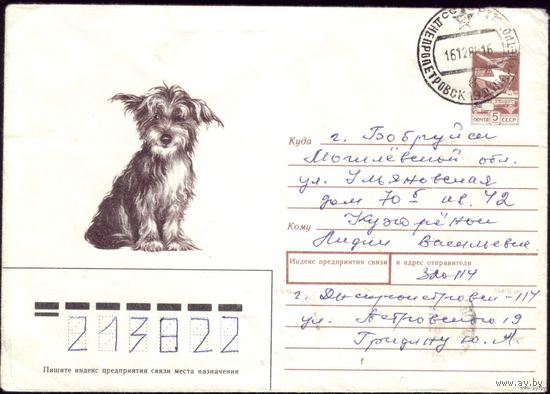 ДНЕПРОПЕТРОВСК
161286 16
ПОЧТА 5 СССР
Куда г. Бобруйск
Могилёвской обл.
ул. Ульяновская
дом 70 Б кв. 42
Кому
Лидии Васильевне
Индекс предприятия связи и адрес отправителя
320114
г. Днепропетровск-114
ул. Островского 19
Гридину Ю. А.
213822
Пишите индекс предприятия связи места назначения
www.ay.by